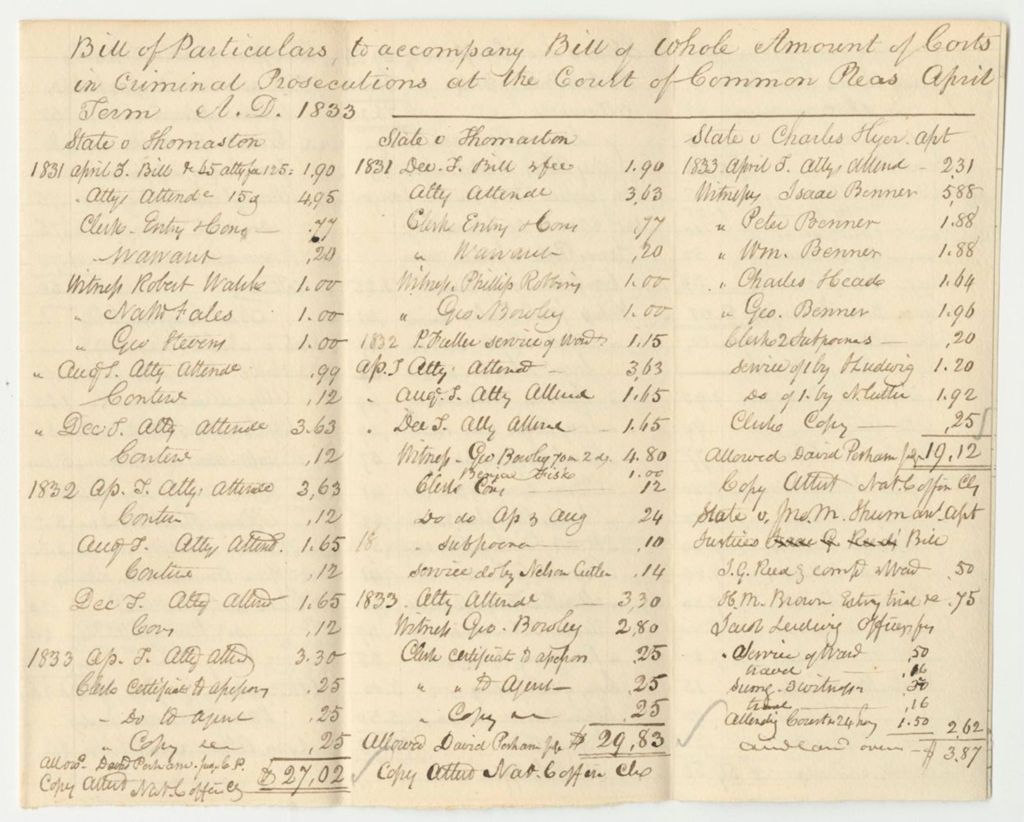 Bill of Particulars, to accompany Bill of Whole Amount of Costs
in Criminal Prosecutions at the Court of Common Pleas April
Term A.D. 1833
State v Thomaston
1831 april T. Bill & 65 atty fee 125= 1.90
Attys Attendce 15 d 4,95
Clerk Entry & Conc .77
Warrant ,20
Witness Robert Walsh 1.00
" Nathl Fales 1.00
" Geo Stevens 1.00
" Aug T. Atty Attendce .99
Contine ,12
" Dec T. Atty attendce 3.63
Contine ,12
1832 Ap. T. Atty. attendce 3,63
Contin ,12
Aug T. Attys Attend. 1.65
Contine ,12
Dec T. Atty Attend 1.65
Con ,12
1833 Ap. T. Atty Attend 3.30
Clerks Certificate to ,25
" Do to Agent ,25
" Copy ,25
Allowd. David Perham C.P. $27,02
Copy Attest Nat. Coffin Clk
State v Thomaston
1831 Dec. T. Bill & fee 1.90
Atty Attendce 3,63
Clerk Entry & Conc .77
" Warrant ,20
Witness. Phillip Robbins 1.00
" Geo Bowley 1.00
1832 P. Fuller service of Warrt 1.15
Ap. T Atty. Attend 3,63
" Aug. T. Atty Attend 1.65
" Dec T. Atty Attend 1.65
Witness - Geo Bowley 70 m 2 d. 4.80
Fisk 1.00
Clerk Con 12
Do do Ap & Aug 24
18 " subpoena .10
service do by Nelson Cutler .14
1833. Atty Attendce 3,30
Witness Geo. Bowley 2,80
Clerk Certificate to .25
" " to Agent 25
" Copy 25
Allowed David Perham $29,83
Copy Attest Nat. Coffin Clk
State v Charles Hyer. apt
1833 April T. Attys Attend 2,31
Witness Isaac Benner 5,88
" Peter Benner 1.88
" Wm. Benner 1.88
" Charles Heade 1.64
" Geo. Benner 1.96
Clerks 2 Subpoenas ,20
service of 1 by Ludwig 1.20
Do of 1. by N. Cutler 1.92
Clerks Copy ,25
Allowed David Perham 19,12
Copy Attest Nat. Coffin Clk
State v. Jno. M. Thurman. Apt
Justices Bill
I. G. Reed compt & Wart .50
H. M. Brown Entry trial &c .75
Jacob Ludwig Officers fees
Service of Warrt 50
travel .16
Summg. 3 witness 30
travel ,16
Attendg Court 24 hours 1.50 2,62
carried over - $3,87